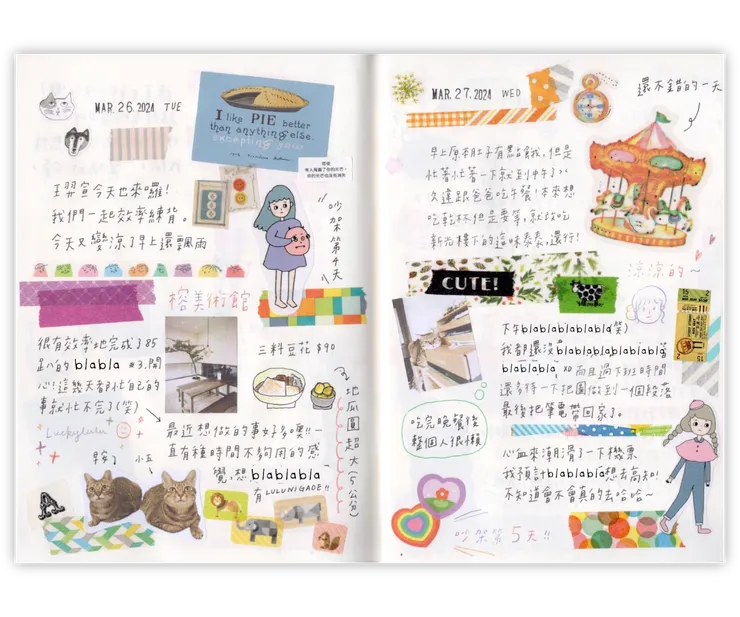 MAR. 26. 2024 TUE
I like PIE better
than anything else.
excepting you
王羿宣今天也來囉!
我們一起效率練背。
今天又變涼了早上還飄雨
吵架第4天
榕美術館
很有效率地完成了85
趴的blabla
心!這幾天都忙自己的
事就忙不完了(笑)
三料豆花 $90
地瓜圓超大(5公分)
Luckylulu
最近想做的事好多噢!!
直有種時間不夠用的感
覺,想blablabla
有LULUNIGAOE!!
小五
A
MAR. 27. 2024 WED
還不錯的一天
早上原本肚子有點餓我,但是
忙著忙著一下就到中午了
久違跟爸爸吃午餐!本來想
吃乾杯但是要等,就改吃
新元樓下的這味泰泰,還行!
涼涼的~
CUTE!
下午blablablablabla笑
我都還沒blablablablablabla
blablabla, XD 而且過下班時間
還多待一下把圖做到一個段落
最後把筆電帶回家了。
吃完晚餐後
整個人很懶
心血來潮滑了一下機票
我預計blablabla想去高知!
不知道會不會真的去哈哈~
吵架第5天!!